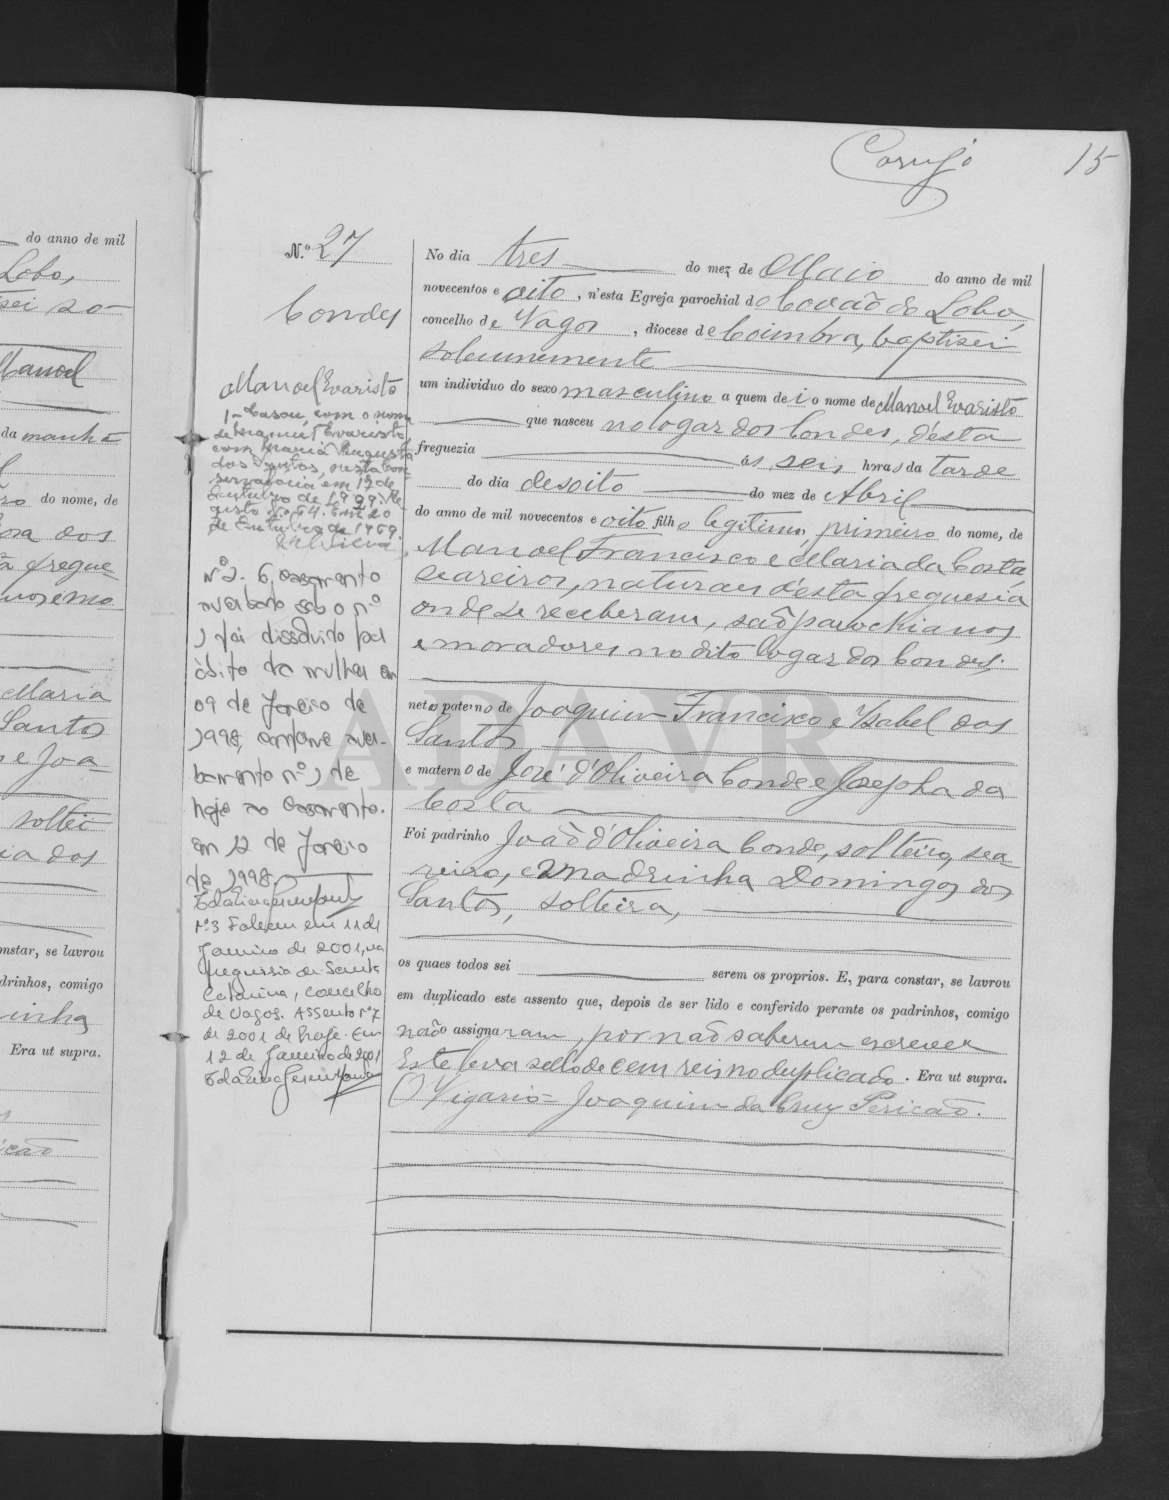 Corujo
15
do anno de mil
Lobo,
Manoel
da manhã
do nome, de
freguе-
Maria
Santos
e Joa-
soltei-
ia dos
onstar, se lavrou
drinhos, comigo
inha
Era ut supra.
N.º 27
Condes
Manoel Evaristo
1 - Casou com o nome
de Manuel Evaristo
com Maria Augusta
dos Santos, nesta Con-
servatoria em 12 de
Outubro de
gisto nº 64. Em 20
de Outubro de 1969.
Nº 2. O casamento
averbado sob o nº
1 foi dissolvido por
óbito da mulher em
09 de Janeiro de
1998, conforme aver-
bamento nº 1 de
hoje ao casamento.
em 12 de Janeiro
de 1998
Nº 3 Faleceu em 11 de
Janeiro de 2001, na
freguesia de Santa
Catarina, concelho
de Vagos. Assento nº 7
de 2001 de Em
12 de Janeiro de 2001
No dia tres do mez de Maio do anno de mil
novecentos e oito, n'esta Egreja parochial do Covão do Lobo,
concelho de Vagos, diocese de Coimbra, baptisei
solemnemente
um individuo do sexo masculino a quem dei o nome de Manoel Evaristo
que nasceu no logar dos Condes, d'esta
freguezia ás seis horas da tarde
do dia desoito do mez de Abril
do anno de mil novecentos e oito filho legitimo, primeiro do nome, de
Manoel Francisco e Maria da Costa,
seareiros, naturaes d'esta freguesia
onde se receberam, são parochianos
e moradores no dito logar dos Condes;
neto paterno de Joaquim Francisco e Isabel dos
Santos
e materno de José d'Oliveira Conde e Josepha da
Costa
Foi padrinho João d'Oliveira Conde, solteiro, sea-
reiro, e madrinha Domingas dos
Santos, solteira,
os quaes todos sei serem os proprios. E, para constar, se lavrou
em duplicado este assento que, depois de ser lido e conferido perante os padrinhos, comigo
não assignaram, por não saberem escrever
Este leva sello de cem reis no duplicado. Era ut supra.
O Vigario - Joaquim da Cruz Pericão.
ADAVR